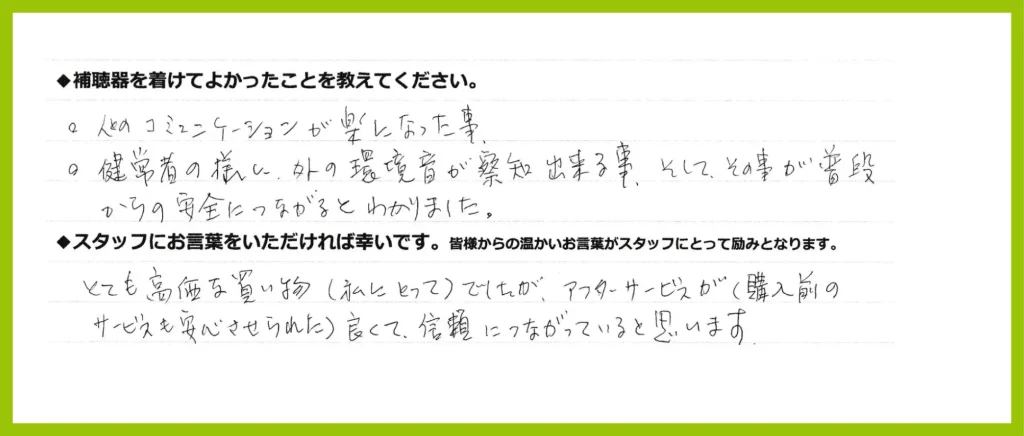 ◆補聴器を着けてよかったことを教えてください。
○ 人とのコミュニケーションが楽になった事、
○ 健常者の様に、外の環境音が察知出来る事、そして、その事が普段
からの安全につながるとわかりました。
◆スタッフにお言葉をいただければ幸いです。皆様からの温かいお言葉がスタッフにとって励みとなります。
とても高価な買い物（私にとって）でしたが、アフターサービスが（購入前の
サービスも安心させられた）良くて、信頼につながっていると思います